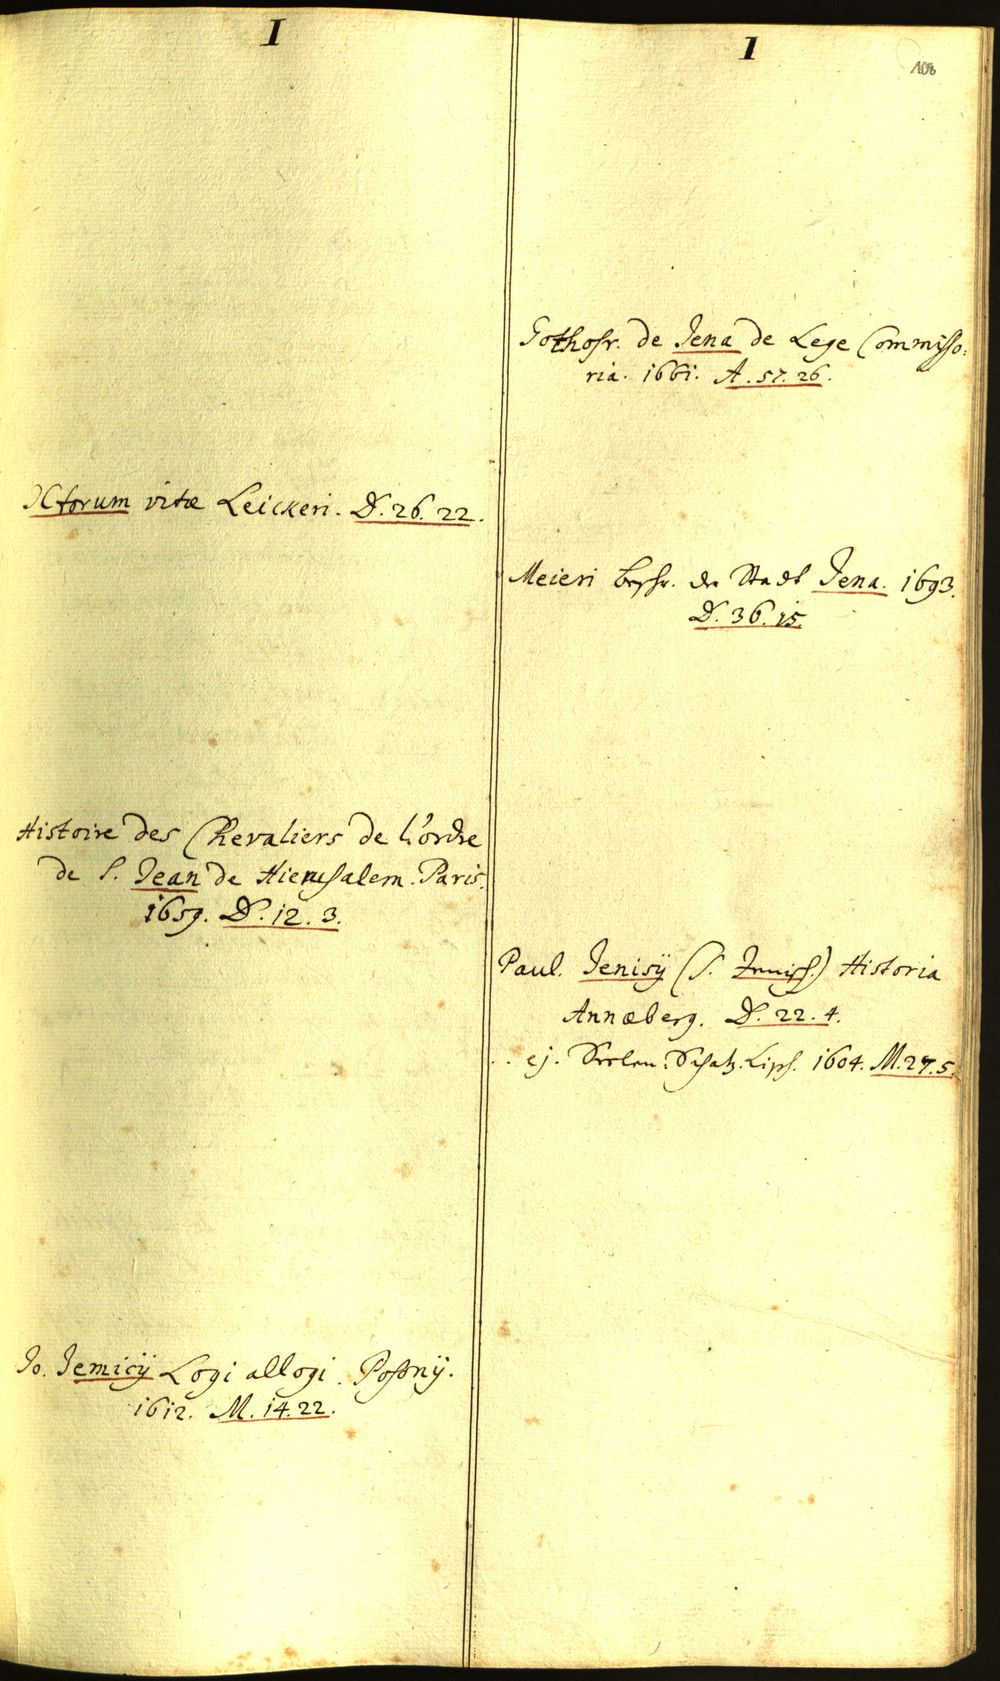 I
JCtorum vitæ Leickeri. D. 26. 22.
Histoire des Chevaliers de l'ordre
de S. Jean de Hierusalem. Paris.
1659. D. 12. 3.
Jo. Jemicij Logi allogi. Posonij.
1612. M. 14. 22.
I
108
Gothofr. de Jena de Lege Commisso:
ria. 1661. A. 57. 26.
Meieri Beschr. der Stadt Jena. 1693.
D. 36. 15.
Paul. Jenisij (S. Jenisch.) Historia
Annæberg. D. 22. 4.
ej. Seelen-Schatz. Lips. 1604. M. 27. 5.